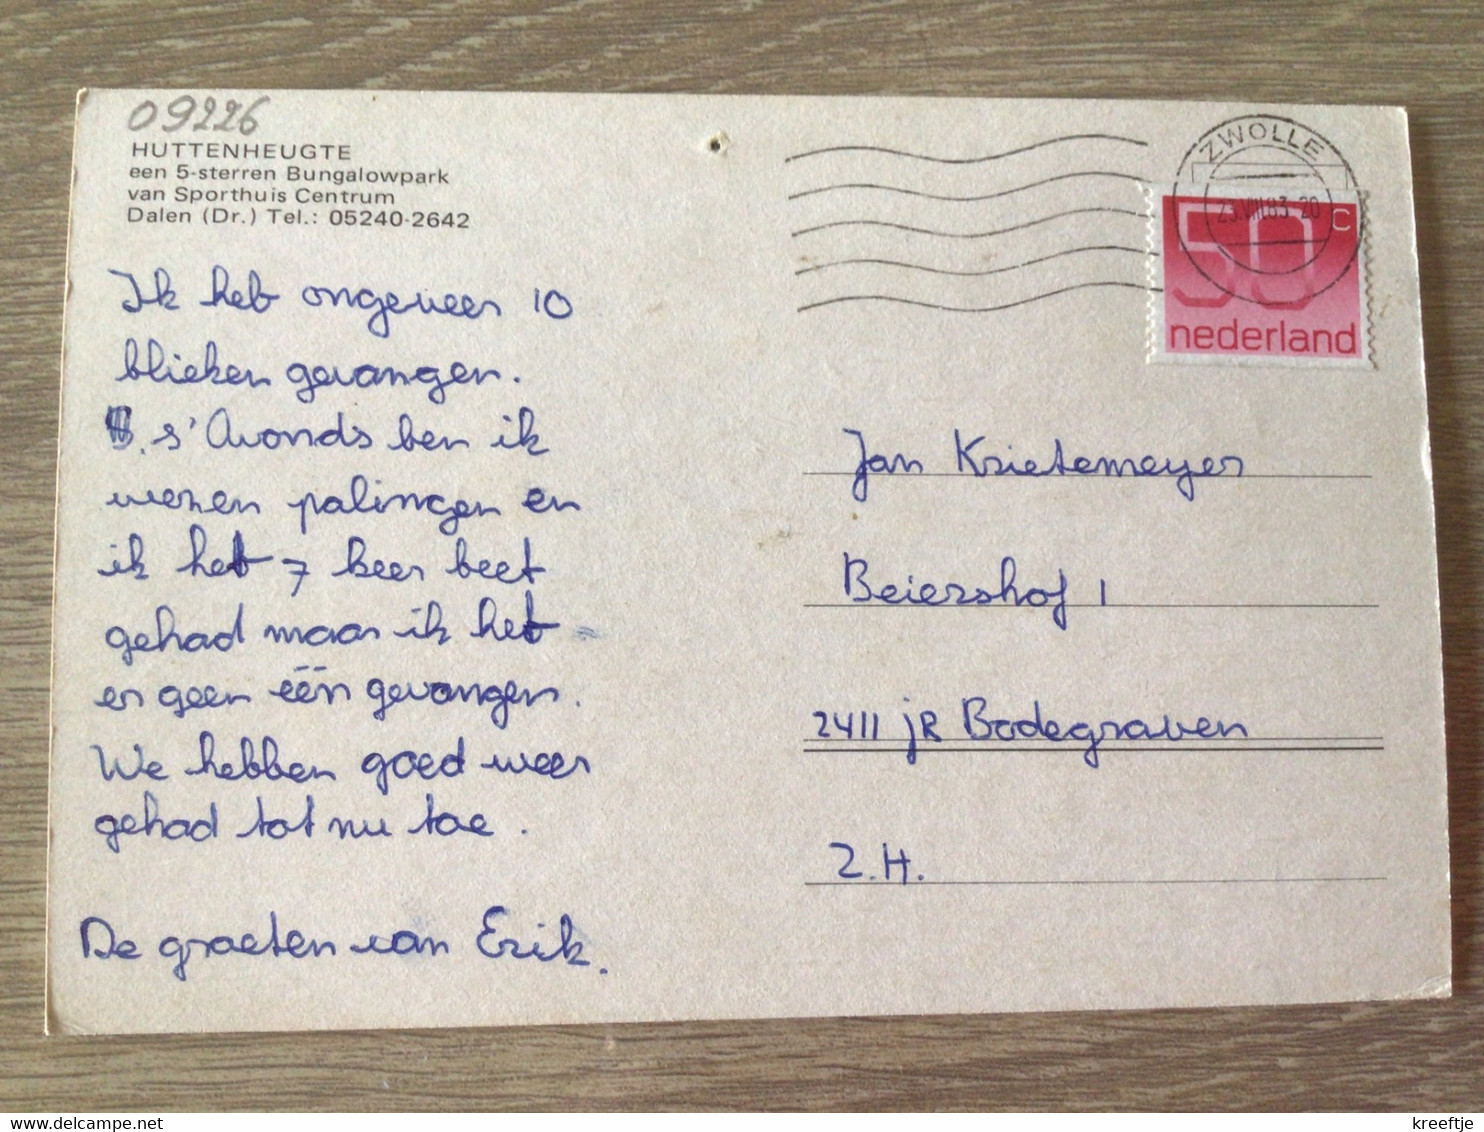 09226
HUTTENHEUGTE
een 5-sterren Bungalowpark
van Sporthuis Centrum
Dalen (Dr.) Tel.: 05240-2642
Ik heb ongeveer 10
blieken gevangen.
s'Avonds ben ik
wezen palingen en
ik heb 7 keer beet
gehad maar ik heb
er geen één gevangen.
We hebben goed weer
gehad tot nu toe.
De groeten van Erik.
ZWOLLE
23.VIII.83.20
50 c
nederland
Jan Krietemeyer
Beiershof 1
2411 jR Bodegraven
Z.H.
kreeftje